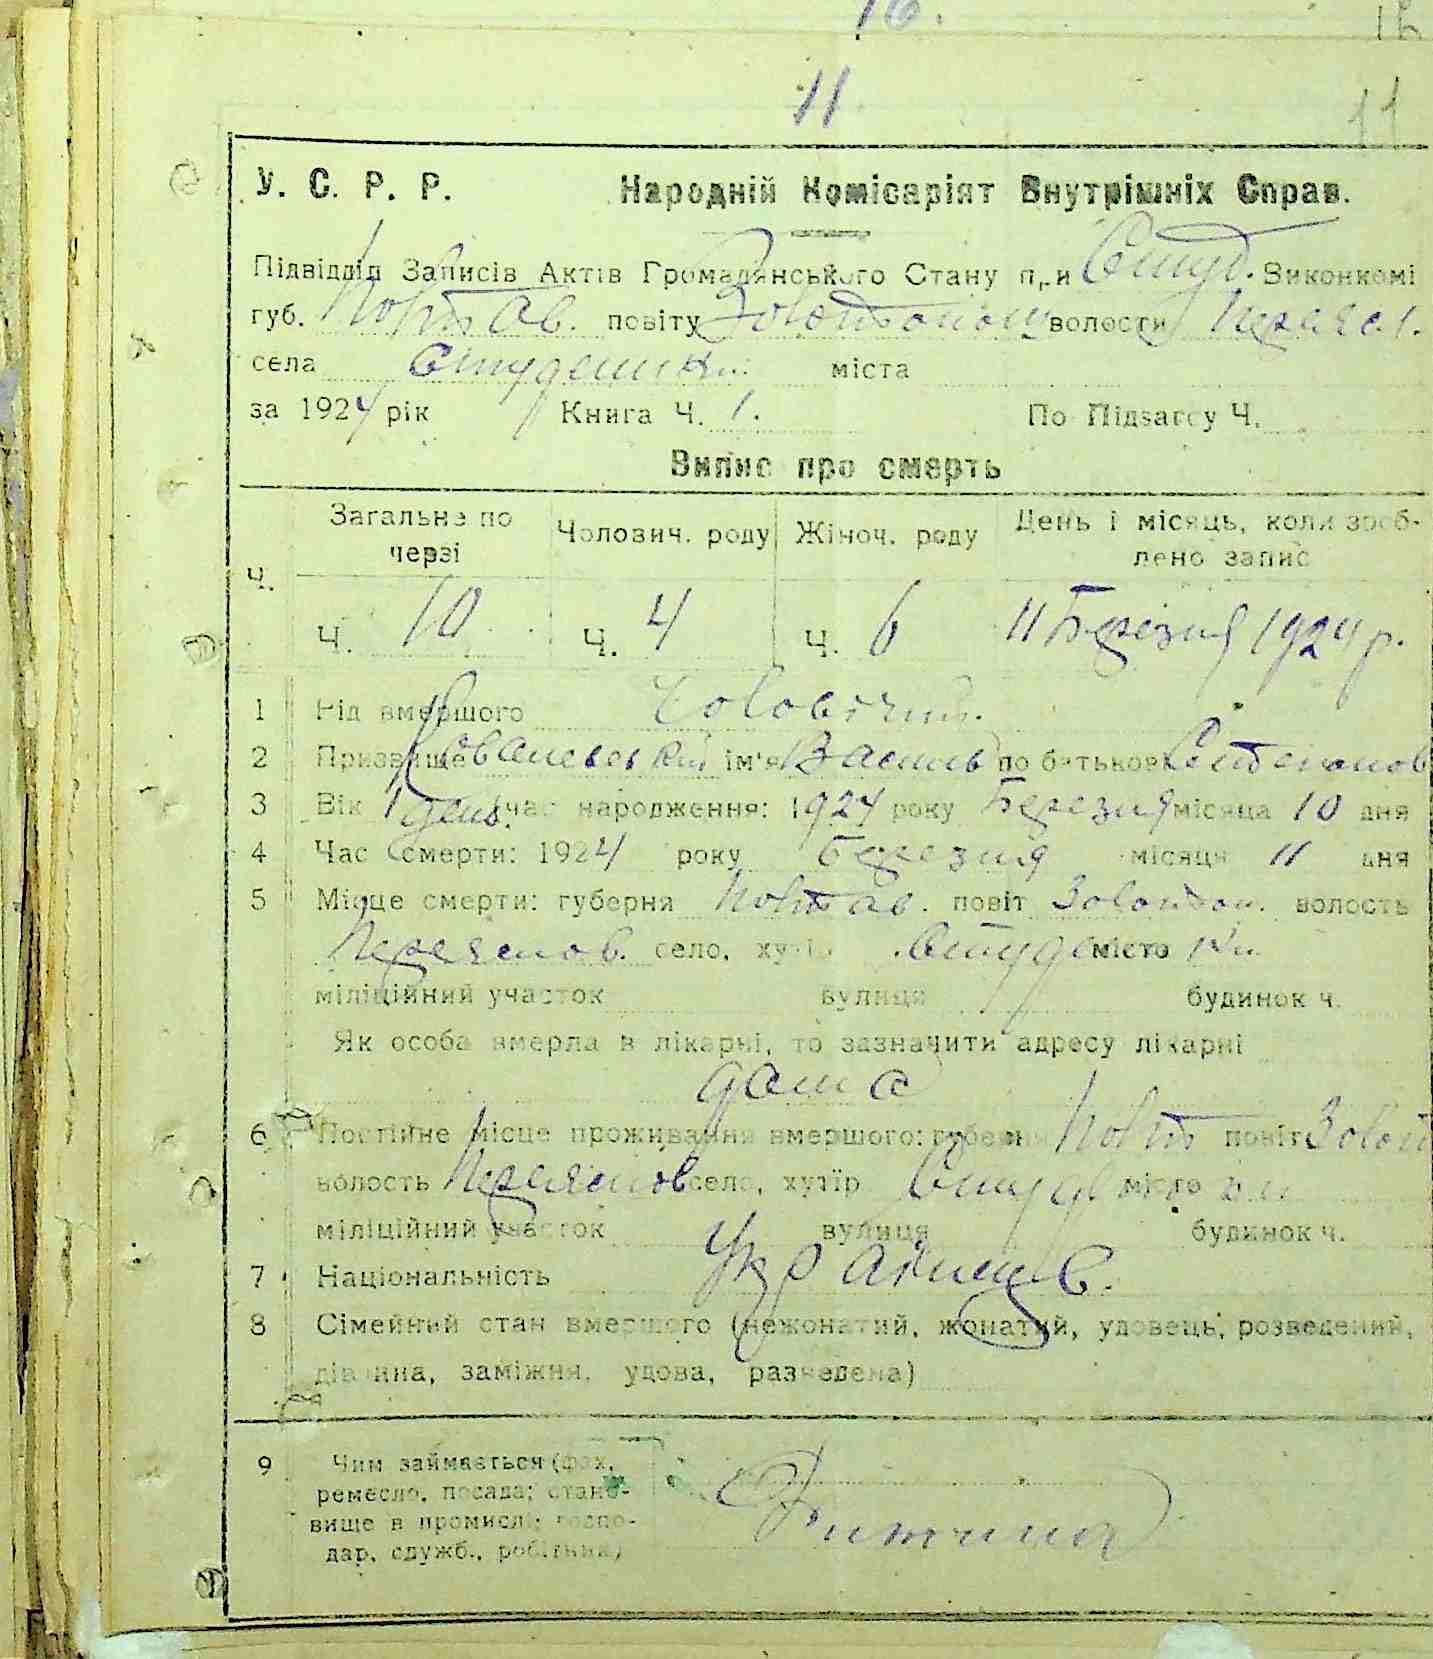 16.
12
11
11
У. С. Р. Р. Народній Комісаріят Внутрішніх Справ.
Підвідділ Записів Актів Громадянського Стану при Студ. Виконкомі
губ. Полтав. повіту Золотонош волости Переясл.
села Студеники міста
за 1924 рік Книга Ч. 1. По Підзагсу Ч.
Випис про смерть
Загальне по черзі Чолович. роду Жіноч. роду День і місяць, коли зроблено запис
Ч. Ч. 10 Ч. 4 Ч. 6 11 Березня 1924 р.
1 Рід вмершого Чоловічий.
2 Призвище ім'я Василь по батькові
3 Вік 1 день час народження: 1924 року Березня місяца 10 дня
4 Час смерти: 1924 року Березня місяця 11 дня
5 Місце смерти: губерня Полтав. повіт Золотон. волость
Переяслов. село, хутір Студе місто ники
міліційний участок вулиця будинок ч.
Як особа вмерла в лікарні, то зазначити адресу лікарні
дома
6 Постійне місце проживання вмершого: губерня Полт повіт Золот
волость Переяслов село, хутір Студе місто ники
міліційний участок вулиця будинок ч.
7 Національність
8 Сімейний стан вмершого (нежонатий, жонатий, удовець, розведений,
дівчина, заміжня, удова, разведена)
9 Чим займається (фах,
ремесло, посада; стано-
вище в промислі; госпо-
дар, служб., робітник) Дитина